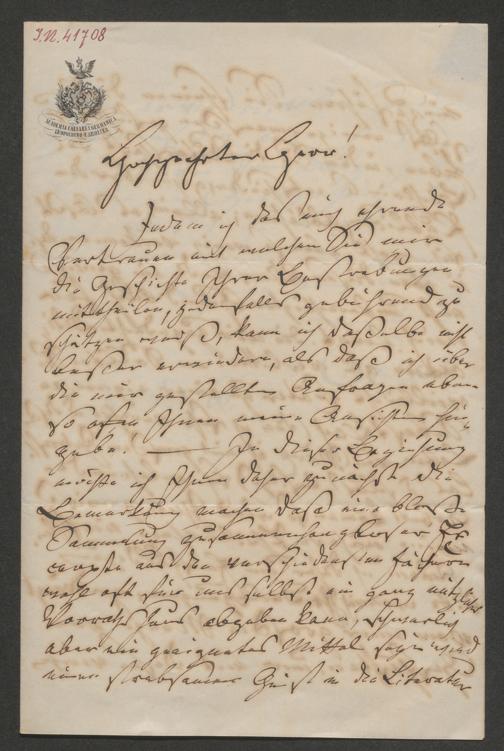 I.N. 41708
ACADEMIA CAESAREA GERMANICA
LEOPOLDINO-CAROLINA
Hochgeehrter Herr!
Indem ich das mich ehrende
Vertrauen mit welchem Sie mir
die Geschichte Ihrer Bestrebungen
mittheilen, jedenfalls gebührend zu
schätzen weiß, kann ich daßelbe nicht
beßer erwiedern, als daß ich über
die mir gestellten Anfragen eben
so offen Ihnen meine Ansichten hin
gebe! — In dieser Beziehung
möchte ich Ihnen daher zunächst die
Bemerkung machen daß eine bloße
Sammlung zusammenhangloser Ex
cerpte aus den verschiedensten Fächern
wohl oft für uns selbst ein ganz nützliches
Vorrathshaus abgeben kann, schwerlich
aber ein geeignetes Mittel seyn wird
einen strebsamen Geist in die Literatur